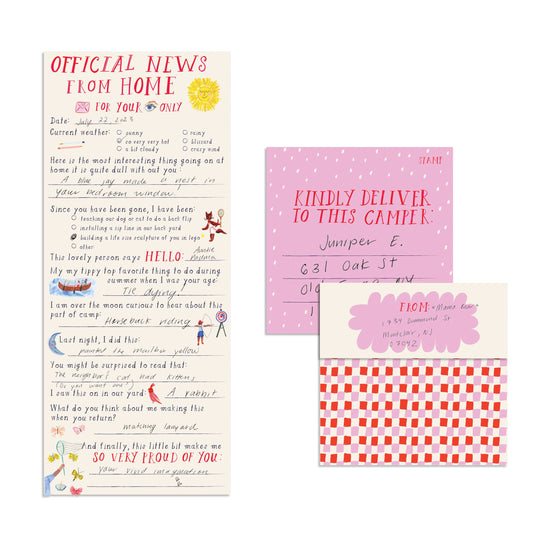 OFFICIAL NEWS
FROM HOME
FOR YOUR ONLY
Date: July 22, 2023
Current weather: sunny rainy
so very very hot blizzard
a bit cloudy crazy wind
Here is the most interesting thing going on at
home it is quite dull with out you:
A blue jay made a nest in
your bedroom window!
Since you have been gone, I have been:
teaching our dog or cat to do a back flip
installing a zip line in our back yard
building a life size sculpture of you in lego
other
This lovely person says HELLO: Auntie
My tippy top favorite thing to do during
summer when I was your age:
Tie dying!
I am over the moon curious to hear about this
part of camp: Horseback riding
Last night, I did this:
painted the mailbox yellow
You might be surprised to read that:
The neighbors cat had kittens
(Do you want one?)
I saw this on in our yard: A rabbit
What do you think about me making this
when you return?
matching lanyard
And finally, this little bit makes me
SO VERY PROUD OF YOU:
your vivid imagination
STAMP
KINDLY DELIVER
TO THIS CAMPER:
Juniper E.
631 Oak St
Old NY
1
FROM: Mama Bear
1734 Drummond St
Montclair, NJ
07042